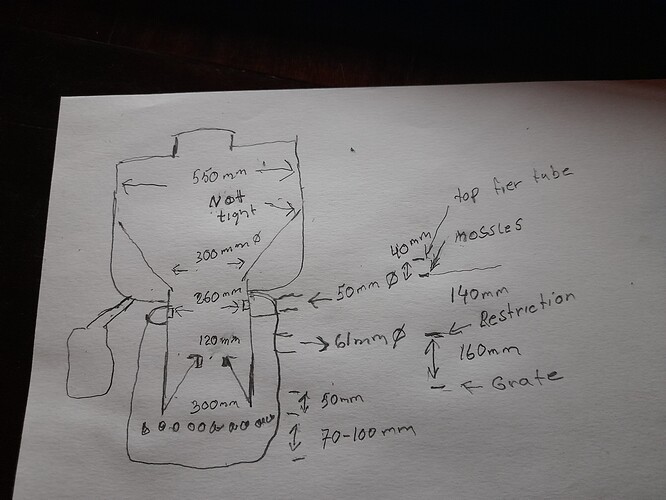 550mm
Nott
tight
300mm Ø
260mm
120mm
300mm
top fier tube
40mm
nossles
50mm Ø
140mm
61mm Ø
Restriction
160mm
Grate
50mm
70-100mm